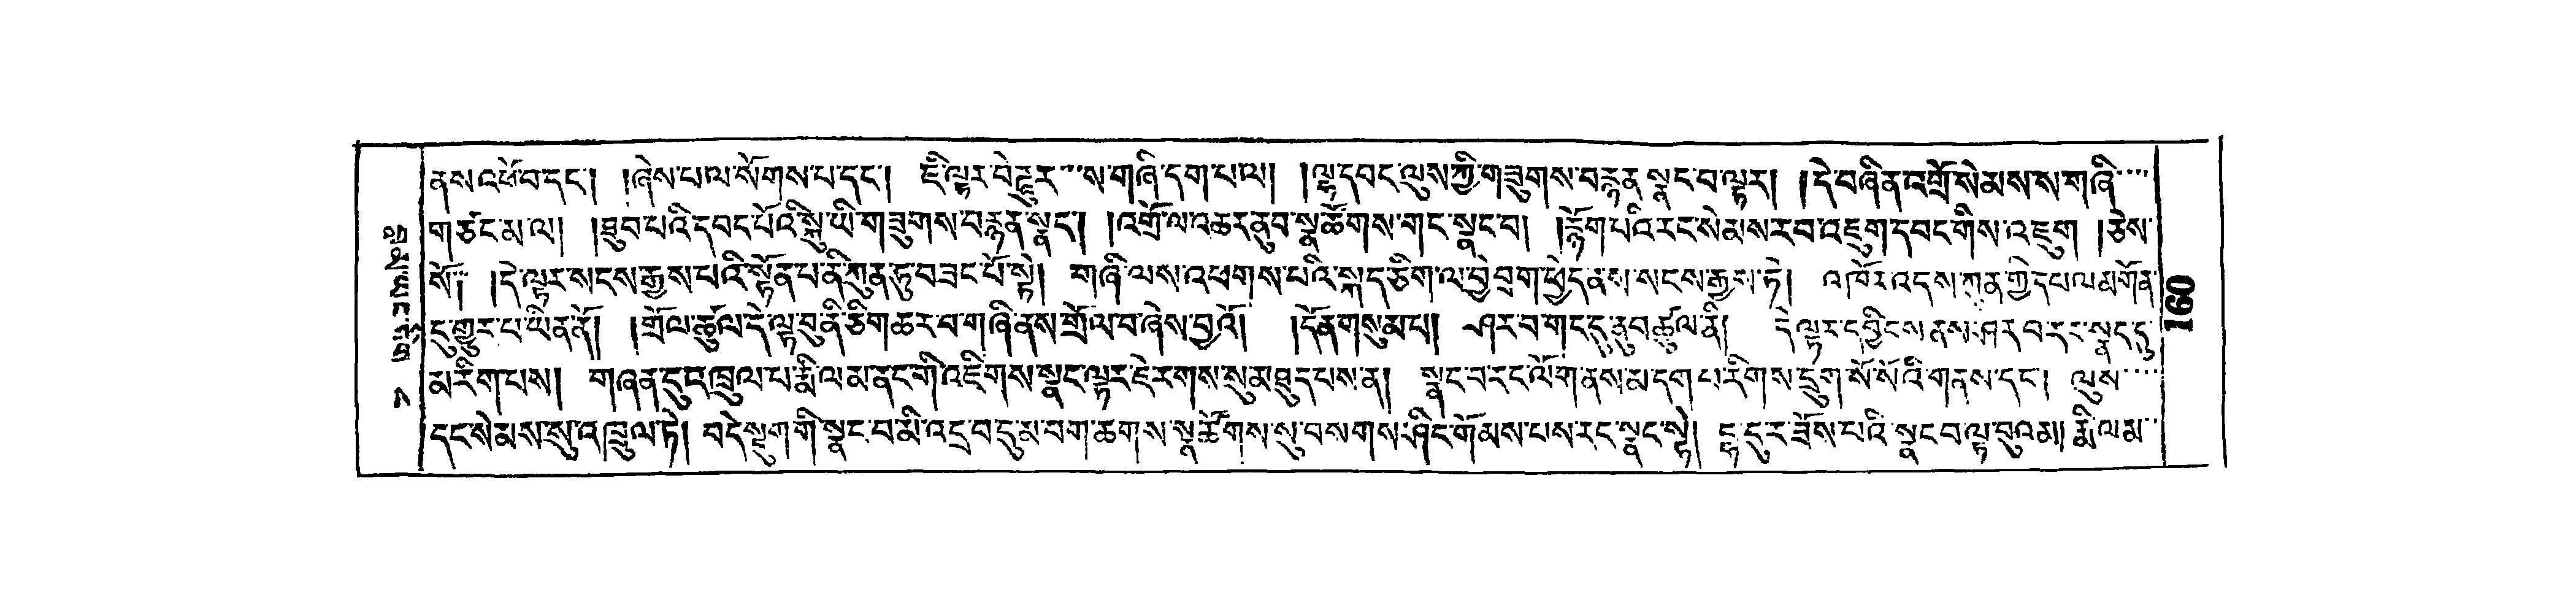 ནས་འཕོ་བ་དང་། །ཞེས་པ་ལ་སོགས་པ་དང་། ཇི་ལྟར་བཻ་ཌཱུར་ས་གཞི་དག་པ་ལ། །ལྷ་དབང་ལུས་ཀྱི་གཟུགས་བརྙན་སྣང་བ་ལྟར། །དེ་བཞིན་འགྲོ་སེམས་ས་གཞི་
གཙང་མ་ལ། །ཐུབ་པའི་དབང་པོའི་སྐུ་ཡི་གཟུགས་བརྙན་སྣང་། །འགྲོ་ལ་འཆར་ནུབ་སྣ་ཚོགས་གང་སྣང་བ། །རྙོག་པའི་རང་སེམས་རབ་འཇུག་དབང་གིས་འཇུག །ཅེས་
སོ༑ །དེ་ལྟར་སངས་རྒྱས་པའི་སྟོན་པ་ནི་ཀུན་ཏུ་བཟང་པོ་སྟེ། གཞི་ལས་འཕགས་པའི་སྐད་ཅིག་ལ་བྱེ་བྲག་ཕྱེད་ནས་སངས་རྒྱས་ཏེ། འཁོར་འདས་ཀུན་གྱི་དཔལ་མགོན་
དུ་གྱུར་པ་ཡིན་ནོ། །གྲོལ་ཚུལ་དེ་ལྟ་བུ་ནི་ཅིག་ཆར་བ་གཞི་ནས་གྲོལ་བ་ཞེས་བྱའོ། །དོན་གསུམ་པ། ཤར་བ་གང་དུ་ནུབ་ཚུལ་ནི། དེ་ལྟར་དབྱིངས་ནས་ཤར་བ་རང་སྣང་དུ་
མ་རིག་པས། གཞན་དུ་འཁྲུལ་པ་རྨི་ལམ་ནང་གི་འཇིགས་སྣང་ལྟར་ཇེ་རགས་སུ་མཐུད་པས་ན། སྣང་བ་རང་ལོག་ནས་མ་དག་པ་རིགས་དྲུག་སོ་སོའི་གནས་དང་། ལུས་
དང་སེམས་སུ་འཁྲུལ་ཏེ། བདེ་སྡུག་གི་སྣང་བ་མི་འདྲ་བ་དུ་མ་བག་ཆགས་སྣ་ཚོགས་སུ་བསགས་ཤིང་གོམས་པས་རང་སྣང་སྟེ། དྷ་དུ་ར་ཟོས་པའི་སྣང་བ་ལྟ་བུའམ། རྨི་ལམ་
160